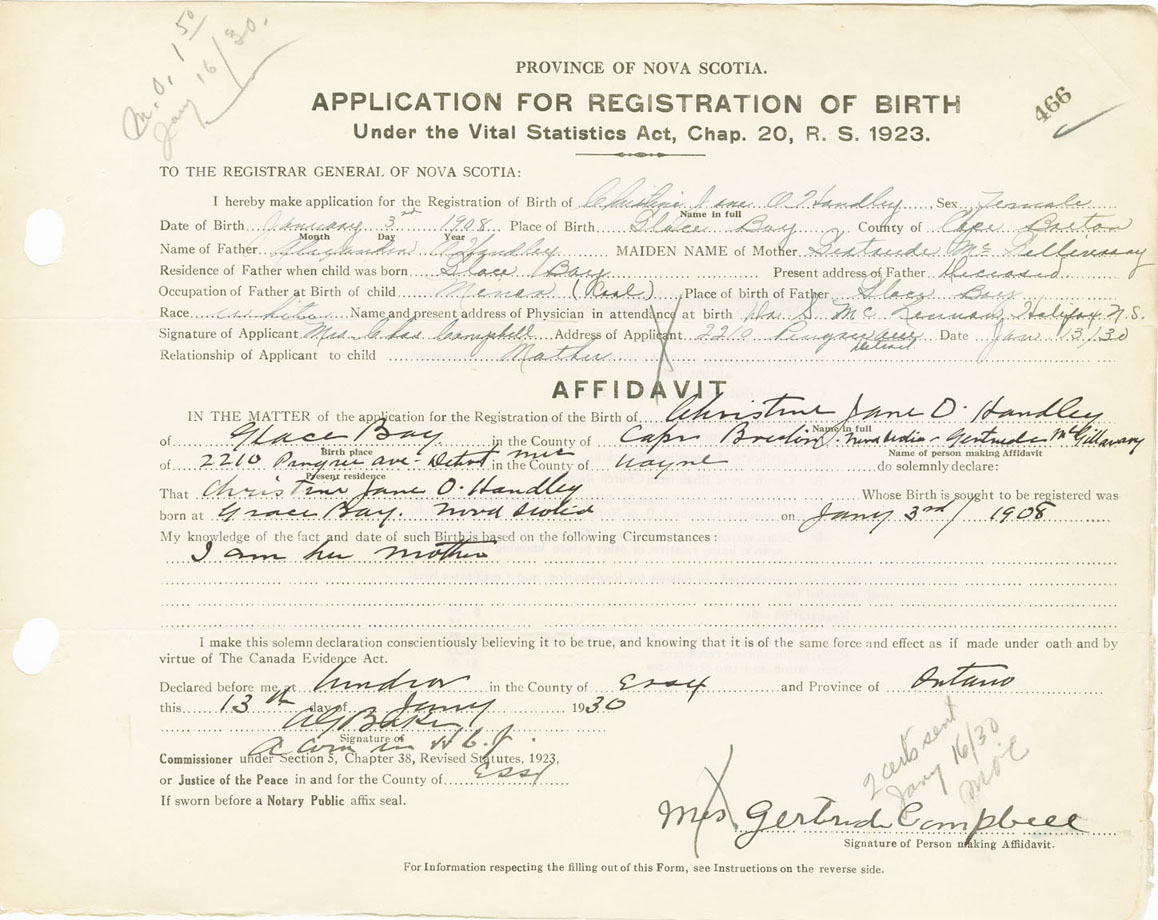 M.O. 1 50
Jany 16/30.
466
PROVINCE OF NOVA SCOTIA.
APPLICATION FOR REGISTRATION OF BIRTH
Under the Vital Statistics Act, Chap. 20, R. S. 1923.
TO THE REGISTRAR GENERAL OF NOVA SCOTIA:
I hereby make application for the Registration of Birth of Christine Jane O'Handley Sex Female
Name in full
Date of Birth January 3rd 1908 Place of Birth Glace Bay County of Cape Breton
Month Day Year
Name of Father O'Handley MAIDEN NAME of Mother Gertrude
Residence of Father when child was born Glace Bay Present address of Father Deceased
Occupation of Father at Birth of child Miner (Coal) Place of birth of Father Glace Bay
Race White Name and present address of Physician in attendance at birth Halifax N.S.
Signature of Applicant Mrs. Chas Campbell Address of Applicant 2210 Pingree ave Detroit Date Jan 13/30
Relationship of Applicant to child Mother
AFFIDAVIT
IN THE MATTER of the application for the Registration of the Birth of Christine Jane O. Handley
Name in full
of Glace Bay in the County of Cape Breton. Nova Scotia - Gertrude McGillavary
Birth place Name of person making Affidavit
of 2210 Pingree ave - Detroit Mic in the County of Wayne do solemnly declare:
Present residence
That Christine Jane O. Handley Whose Birth is sought to be registered was
born at Grace Bay. Nova Scotia on Jany 3rd / 1908
My knowledge of the fact and date of such Birth is based on the following Circumstances:
I am her mother
I make this solemn declaration conscientiously believing it to be true, and knowing that it is of the same force and effect as if made under oath and by
virtue of The Canada Evidence Act.
Declared before me at Windsor in the County of Essex and Province of Ontario
this 13th day of Jany 1930
AG Baker
Signature of
A Com in H C J.
Commissioner under Section 5, Chapter 38, Revised Statutes, 1923,
or Justice of the Peace in and for the County of Essex
If sworn before a Notary Public affix seal.
2 certs sent
Jany 16/30
Mrs. Gertrude Campbell
Signature of Person making Affidavit.
For Information respecting the filling out of this Form, see Instructions on the reverse side.